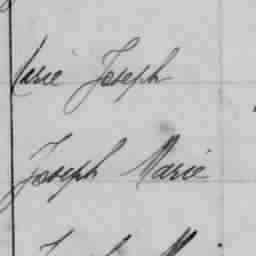 Marie Joseph
Joseph Marie